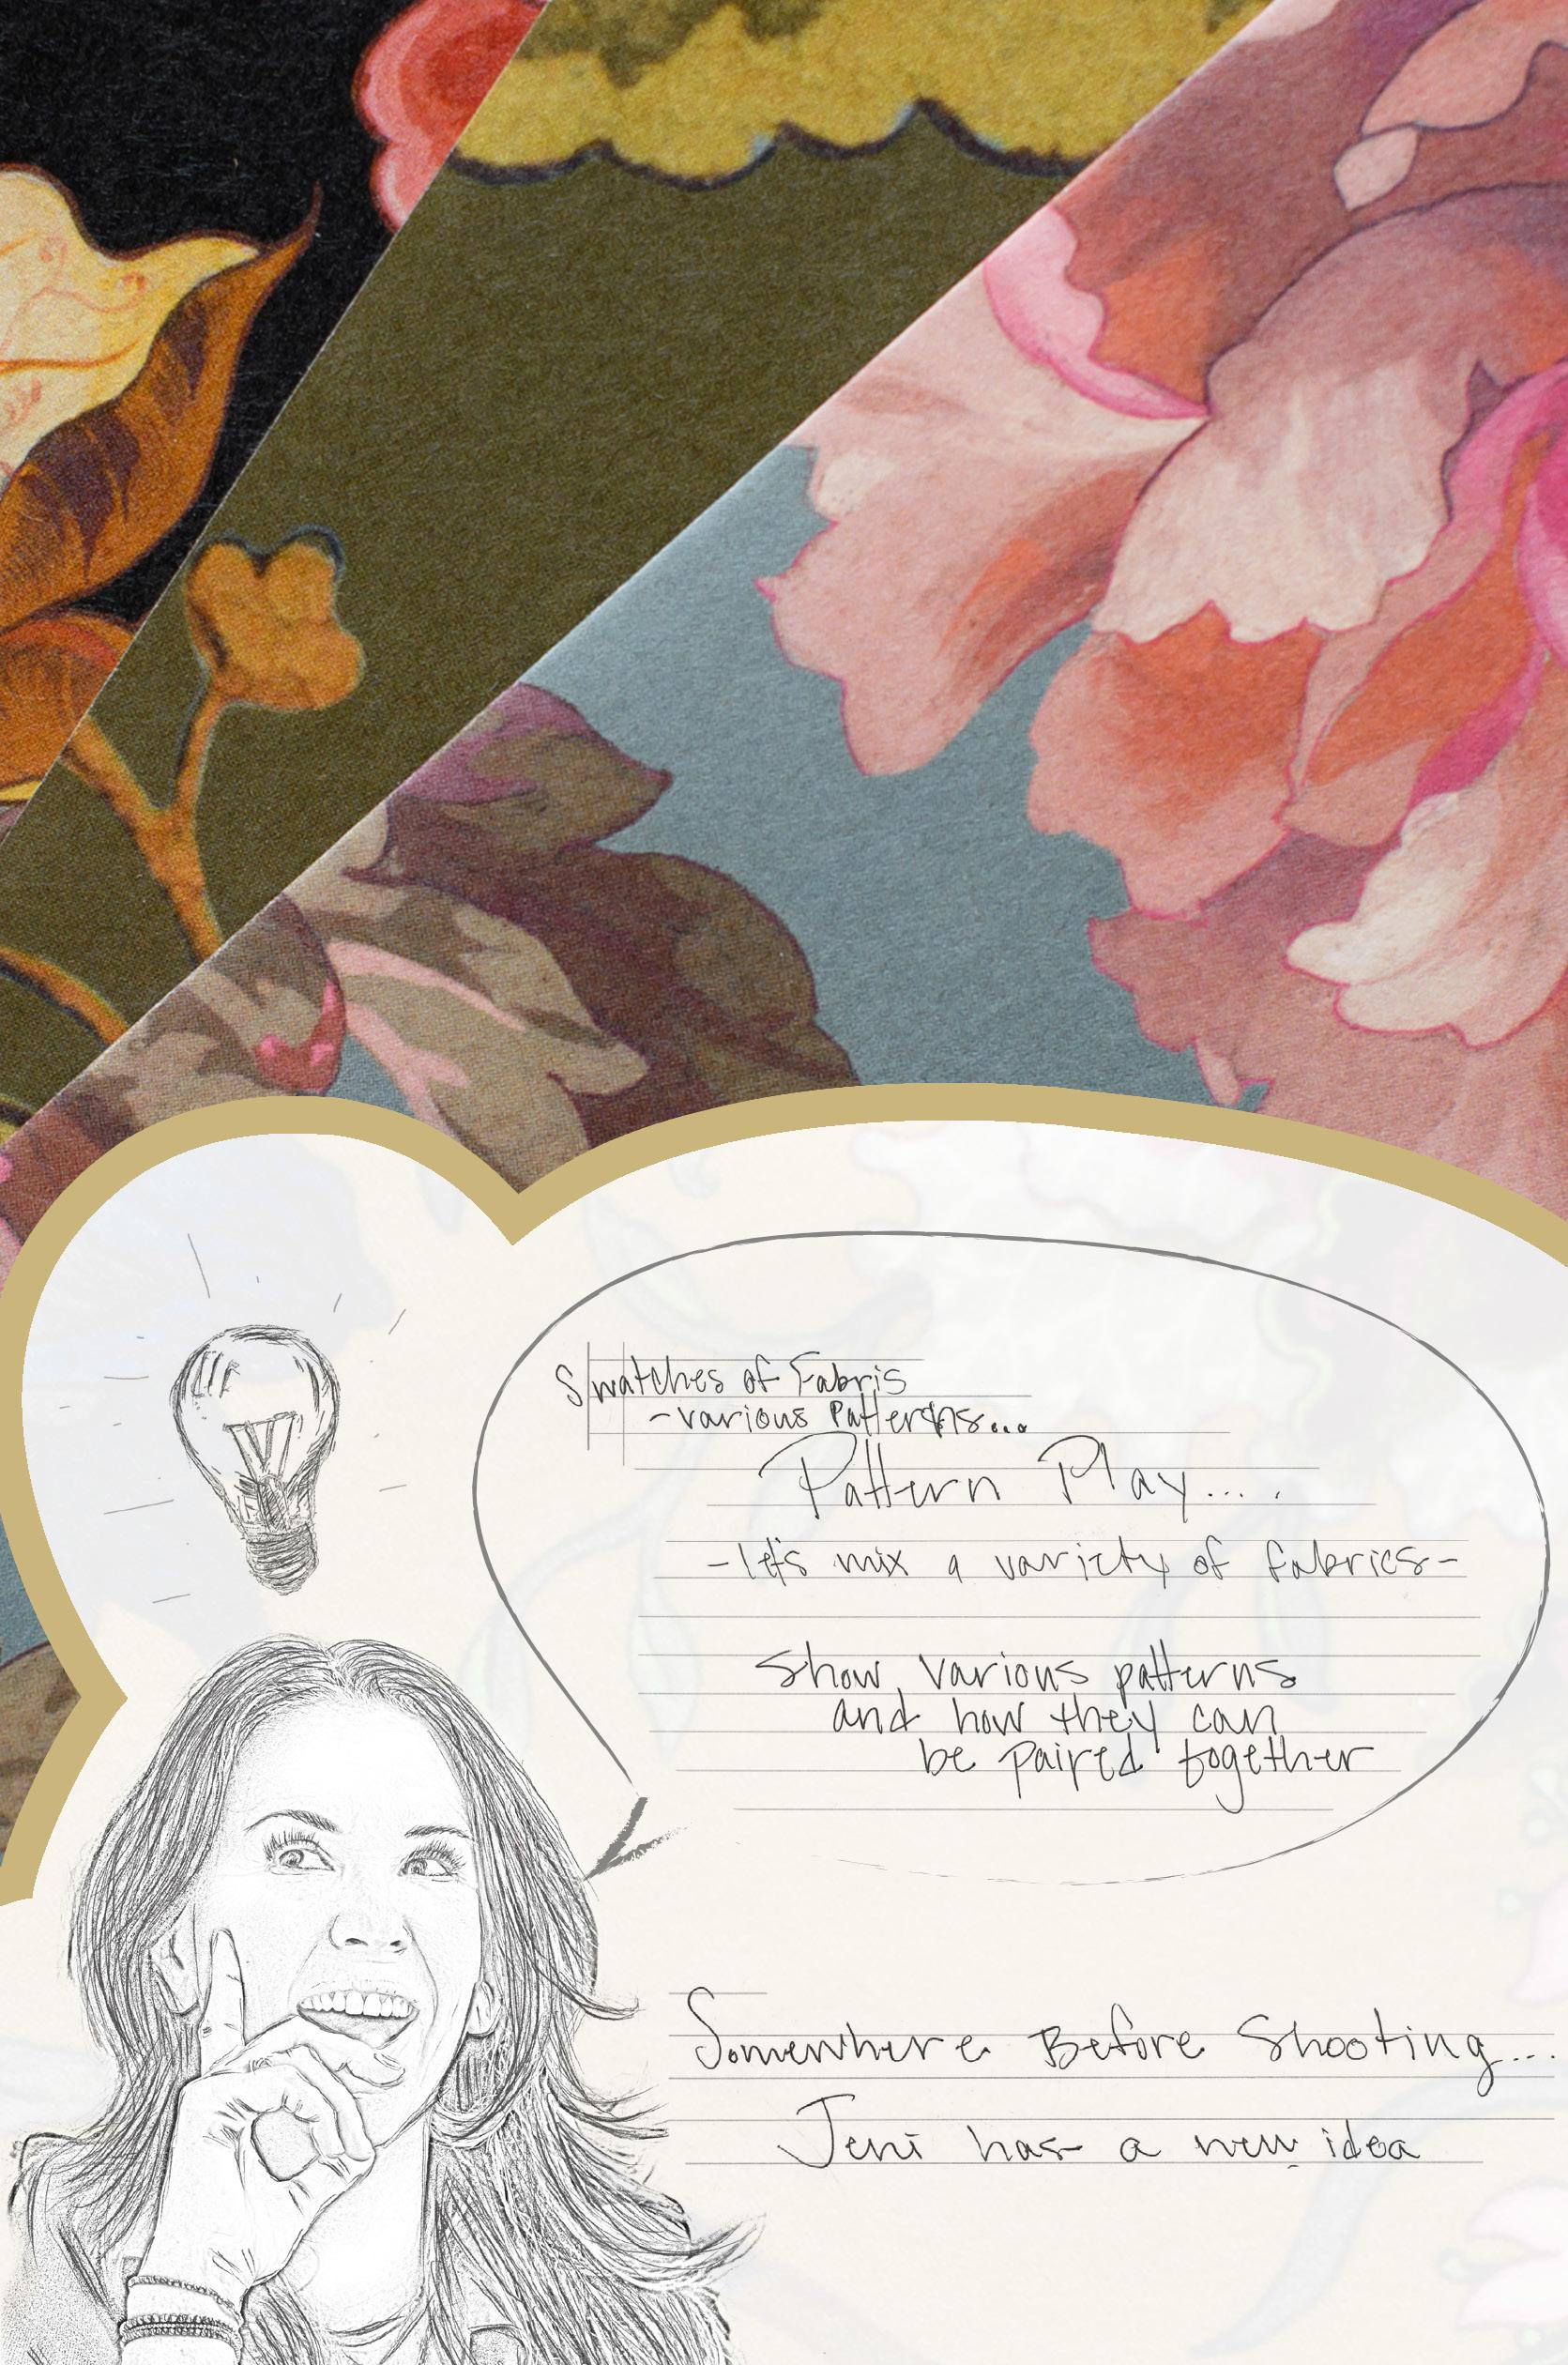 Swatches of Fabris
- various Patterns...
Pattern Play....
- let's mix a variety of fabrics -
Show various patterns
and how they can
be paired together
Somewhere Before Shooting...
Jeni has a new idea